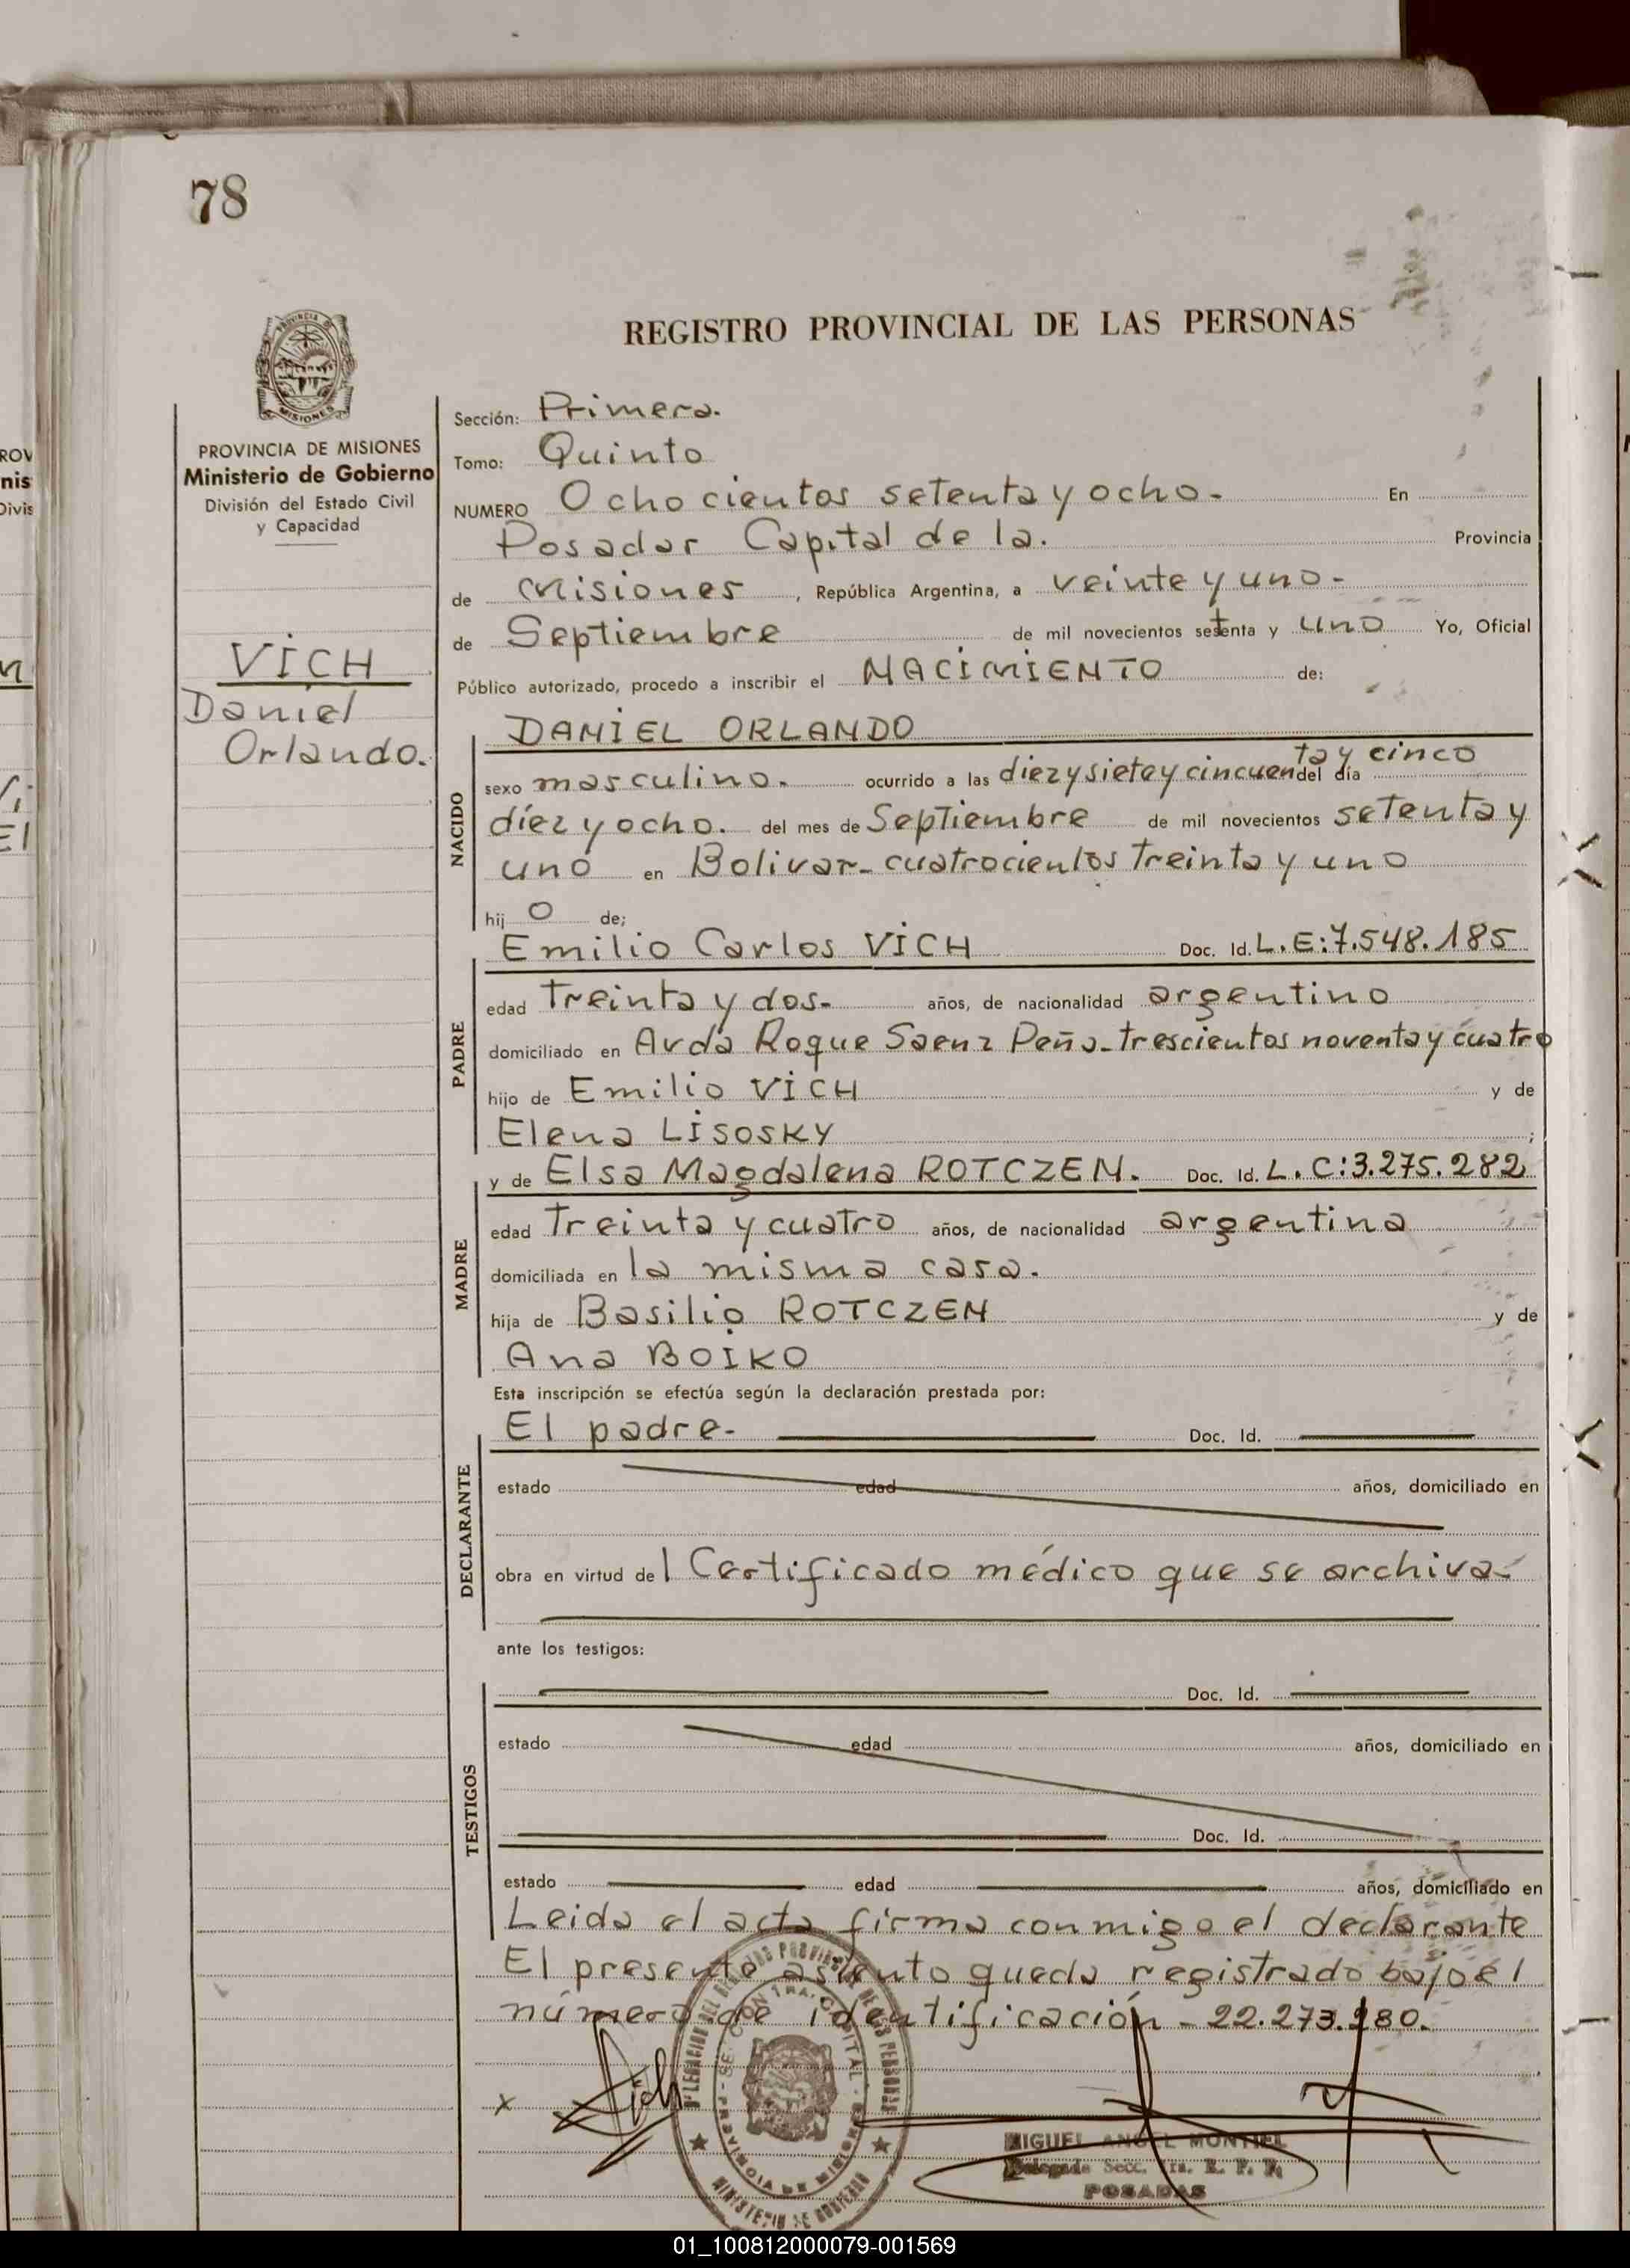 78
REGISTRO PROVINCIAL DE LAS PERSONAS
PROVINCIA DE MISIONES
Ministerio de Gobierno
División del Estado Civil
y Capacidad
VICH
Daniel
Orlando.
Sección: Primera.
Tomo: Quinto
NUMERO Ochocientos setenta y ocho. En
Posadas Capital de la. Provincia
de Misiones, República Argentina, a veinte y uno-
de Septiembre de mil novecientos setenta y uno Yo, Oficial
Público autorizado, procedo a inscribir el NACIMIENTO de:
NACIDO
DANIEL ORLANDO
sexo masculino. ocurrido a las diez y siete y cincuenta y cinco del día
diez y ocho. del mes de Septiembre de mil novecientos setenta y
uno en Bolivar- cuatrocientos treinta y uno
hij o de;
PADRE
Emilio Carlos VICH Doc. Id. L.E:7.548.185
edad Treinta y dos- años, de nacionalidad argentino
domiciliado en Avda Roque Saenz Peña-trescientos noventa y cuatro
hijo de Emilio VICH y de
Elena LISOSKY ;
MADRE
y de Elsa Magdalena ROTCZEN. Doc. Id. L.C:3.275.282
edad Treinta y cuatro años, de nacionalidad argentina
domiciliada en la misma casa.
hija de Basilio ROTCZEN y de
Ana BOIKO
Esta inscripción se efectúa según la declaración prestada por:
DECLARANTE
El padre- Doc. Id.
estado edad años, domiciliado en
obra en virtud del Certificado médico que se archiva-
ante los testigos:
TESTIGOS
Doc. Id.
estado edad años, domiciliado en
Doc. Id.
estado edad años, domiciliado en
Leida el acta firma conmigo el declarante
El presente asiento queda registrado bajo el
número de identificación - 22.273.280.
x Vich
MIGUEL ANGEL MONTIEL
Delegado Secc. 1ra. R. P. P.
POSADAS
PROVINCIA DE MISIONES
MINISTERIO DE GOBIERNO
01_100812000079-001569